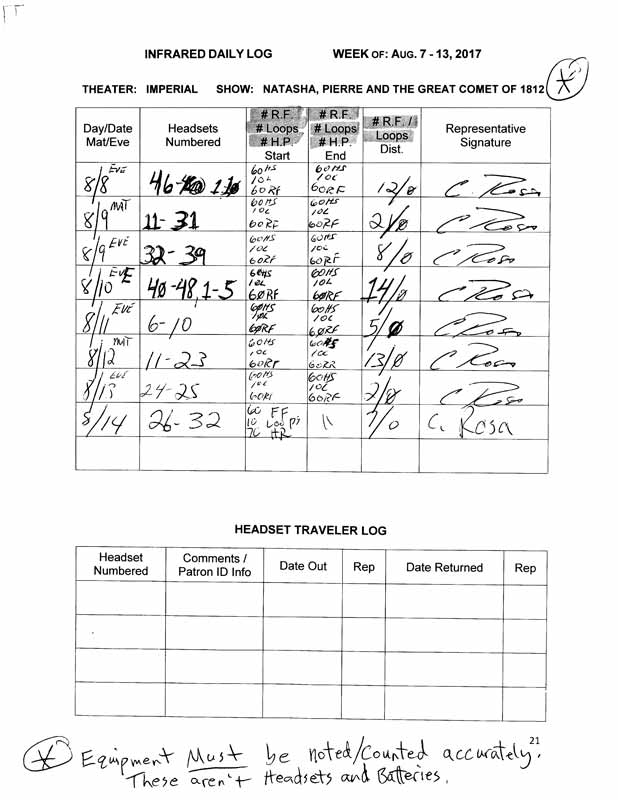 INFRARED DAILY LOG WEEK OF: AUG. 7 - 13, 2017
THEATER: IMPERIAL SHOW: NATASHA, PIERRE AND THE GREAT COMET OF 1812
Day/Date Mat/Eve Headsets Numbered # R.F. # Loops # H.P. Start # R.F. # Loops # H.P. End # R.F. / Loops Dist. Representative Signature
8/8 EVE 46- 60HS 10L 60RF 60HS 10L 60RF 12/0 C. Rosa
8/9 MAT 11-31 60HS 10L 60RF 60HS 10L 60RF 21/0 C Rosa
8/9 EVE 32-39 60HS 10L 60RF 60HS 10L 60RF 8/0 C Rosa
8/10 EVE 40-48, 1-5 60HS 10L 60RF 60HS 10L 60RF 14/0 C Rosa
8/11 EVE 6-10 60HS 10L 60RF 60HS 10L 60RF 5/0 C Rosa
8/12 MAT 11-23 60HS 10L 60RF 60HS 10L 13/0 C Rosa
8/13 EVE 24-25 60HS 10L 60HS 10L 60RF 2/0 C Rosa
8/14 26-32 60 FF 10 Loops 70 HR 11 7/0 C. Rosa
HEADSET TRAVELER LOG
Headset Numbered Comments / Patron ID Info Date Out Rep Date Returned Rep
21
Equipment Must be noted/Counted accurately.
These aren't Headsets and Batteries.